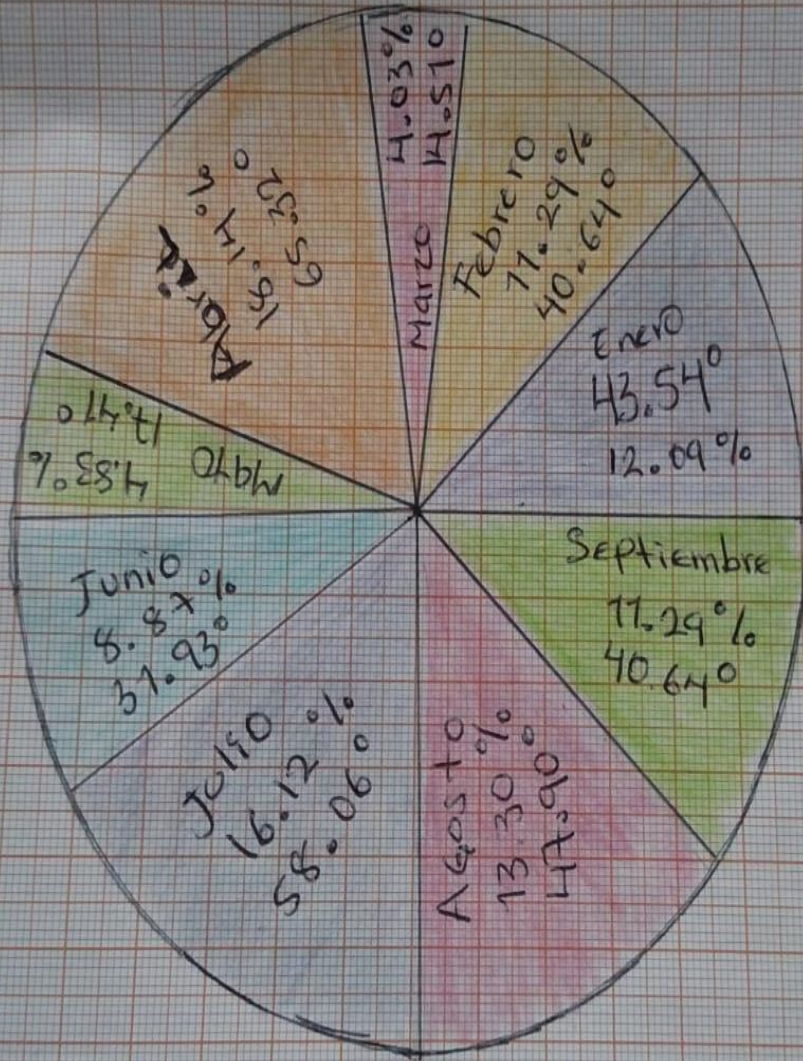 Enero
43.54°
12.09%
Febrero
11.29%
40.64°
Marzo
4.03%
14.510
Abril
18.14%
65.32°
Mayo
4.83%
17.41°
Junio
8.87%
31.93°
Julio
16.12%
58.06°
Agosto
13.30%
47.90°
Septiembre
11.29%
40.64°